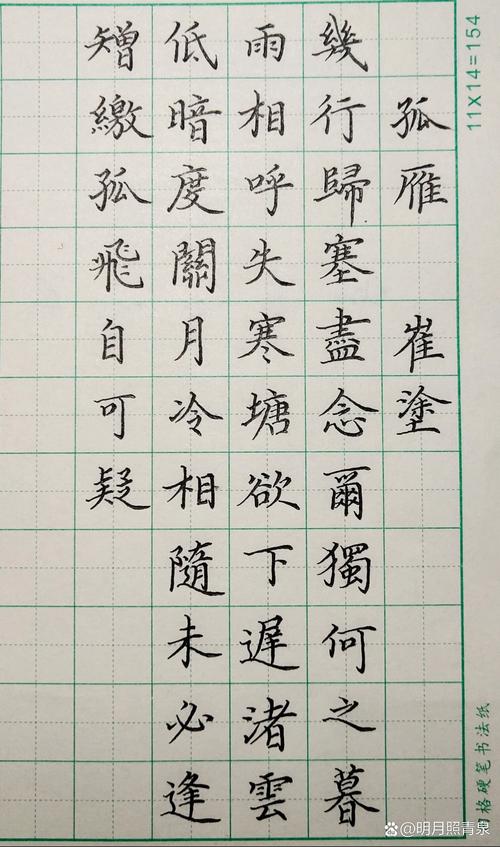 孤雁 崔塗
幾行歸塞盡念爾獨何之暮
雨相呼失寒塘欲下遲渚雲
低暗度關月冷相隨未必逢
矰繳孤飛自可疑
11X14=154
格硬笔书法纸
@明月照青泉